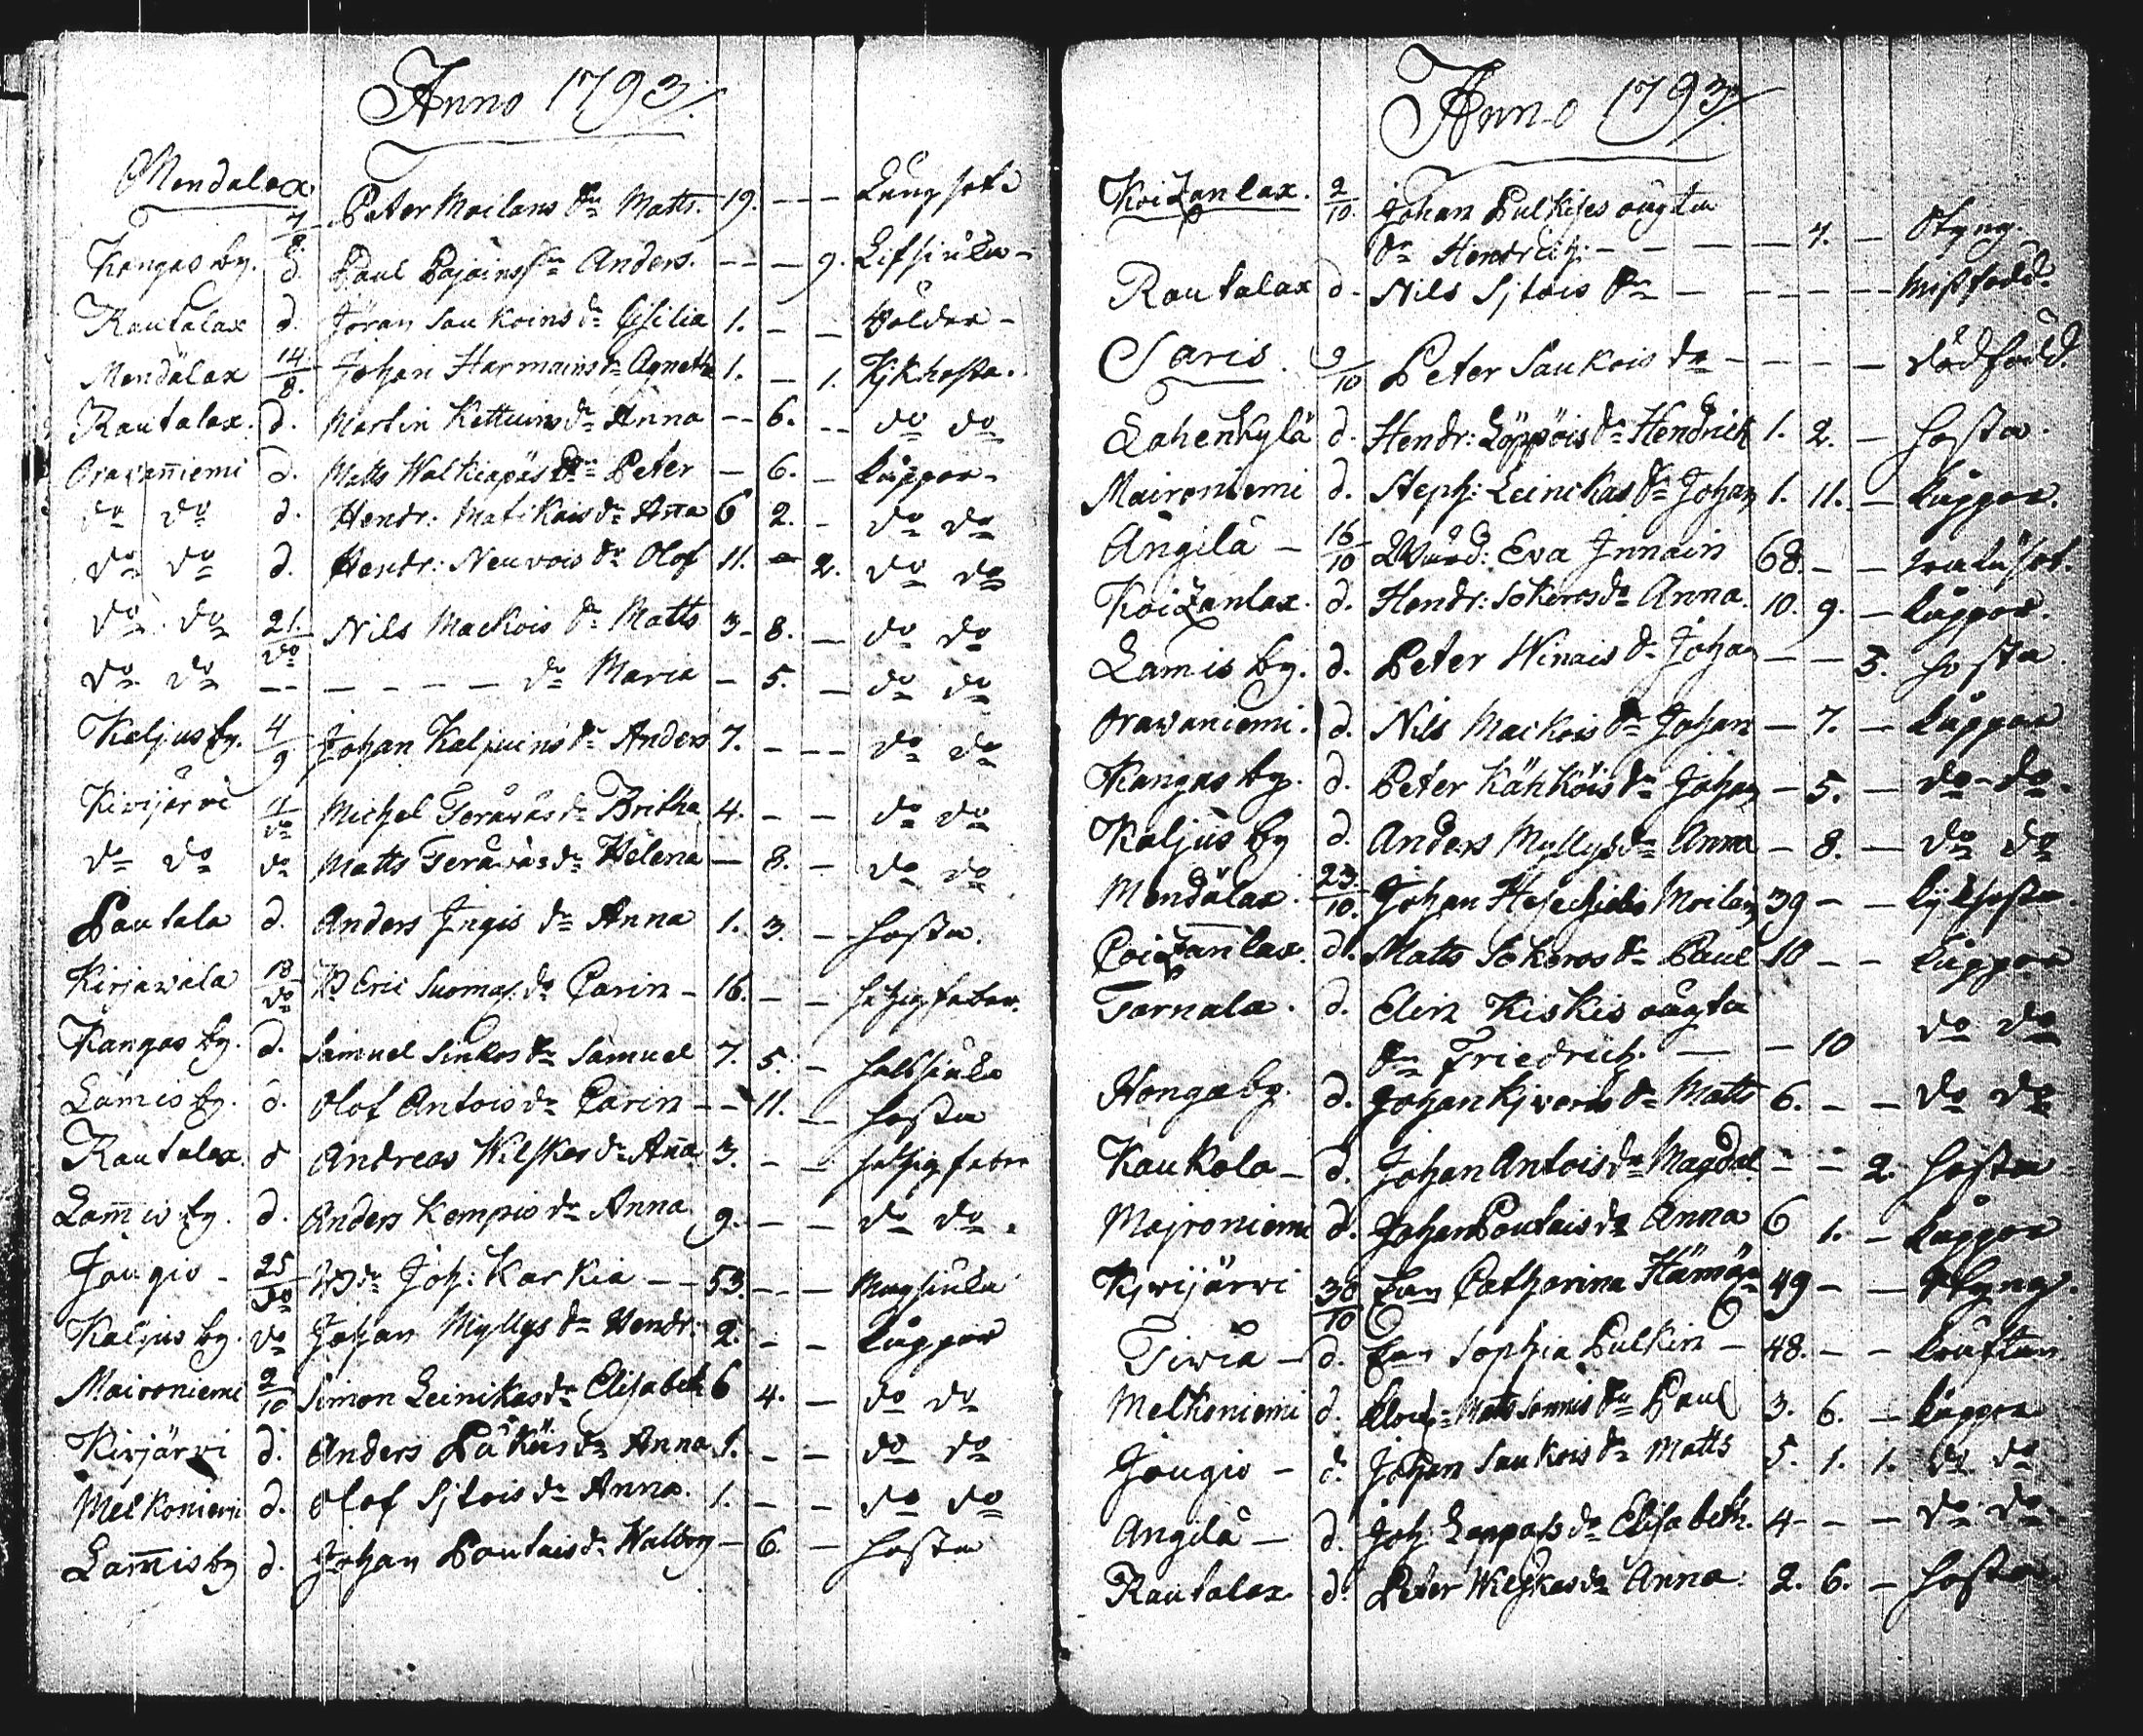 Anno 1793.
Mendalax 7/8 Peter Moilans Sn Matts. 19. - - Lungsot
Kangas by. d. Paul Pajains Sn Anders. - - 9. Lifsiuka -
Rautalax d. Jöran Saukoins dr Cisilia 1. - - Bölder -
Mendälax 14/8. Johan Harmains dr Agneta 1. - 1. Kjkhosta.
Rautalax. d. Martin Kettuins dr Anna - 6. - do do
Oravaniemi d. Matts Walkiapäs Sn Peter - 6. - kåppor.
do do d. Hendr: Matikais dr Ana 6 2. - do do
do do d. Hendr: Neuvois Sn Olof 11. - 2. do do
do do 21/do Nils Mackois Sn Matts 3 8. - do do
do do - - - - - dr Maria - 5. - do do
Kaljus by. 4/9 Johan Kaljuins Sn Anders 7. - - do do
Kivijärvi 4/do Michel Teräväs dr Britha 4. - - do do
do do do Matts Teräväs dr Helena - 8. - do do
Pautala d. Anders Ingis dr Anna 1. 3. - hosta.
Kirjavala 18/do Eric Suomas. dr Carin - 16. - - hetzigfeber.
Kangas by. d. Samuel Sinkos Sn Samuel 7. 5. - halssiuka
Lamis by. d. Olof Antois dr Carin - - 11. - hosta
Rautalax. d Andreas Wilskas dr Ana 3. - - hetzigfeber
Lamis by. d. Anders Kempis dr Anna 9. - - do do.
Jougio - 25/do Joh: Karkia - - 53. - - Magsiuka
Kaljus by. do Johan Myllys Sn Hendr: 2. - - kåppor
Maironiemi 2/10 Simon Leinikas dr Elisabeth 6 4. - do do
Kivjärvi d. Anders Päköis dr Anna 1. - - do do
Melkoniemi d. Olof Sjtois dr Anna. 1. - - do do
Lamisby d. Johan Poutais dr Walborg - 6. - hosta
Anno 1793.
Koitzanlax. 2/10. Johan Pulkises oägta
Sn Hendrich. - - - - 4. - Styng.
Rautalax d - Nils Sjtois Sn - - - - - Missfödd.
Saris. 9/10 Peter Saukois dr - - - - - dödfödd.
Lahenkylä d. Hendr: Löppöis Sn Hendrick 1. 2. - hosta.
Maironiemi d. Steph: Leinikas Sn Johan 1. 11. - kåppor.
Ängilä - 16/10 Eva Innain 68. - -
Koitzanlax. d. Hendr: Sokeros dr Anna. 10. 9. - kåppor.
Lamis by. d. Peter Hinais Sn Johan - - 3. hosta.
Oravaniemi. d. Nils Mackois Sn Johan - 7. - kåppor
Kangas by. d. Peter Kähköis Sn Johan - 5. - do - do.
Kaljus by d. Anders Myllys dr Anna - 8. - do do
Mendälax. 23./10. Johan Moilain 39 - - kjkhosta.
Coitzanlax. d. Matts Sokeros Sn Paul 10 - - kåppor
Tarnala. d. Elin Kiskis oägta
Sn Friedrich. - - 10 do do
Honga by. d. Johan Kjveris Sn Matts 6. - - do do
Kaukola - d. Johan Antois dr Magdal. - - 2. hosta
Majroniemi d. Johan Poutais dr Anna 6 1. - kåppor
Kjvijärvi 30/10 Catharina Hämäin 49 - - Styng.
Tivia - d. Sophia Pulkin - 48. - - kräftan
Melkoniemi d. Matts Sornis Sn Paul 3. 6. - kåppor
Jougio - d. Johan Saukois Sn Matts 5. 1. 1. do do
Angilä - d. Joh: Lappass dr Elisabeth. 4 - - - do do.
Rautalax d. Peter Wilskas dr Anna. 2. 6. - hosta.